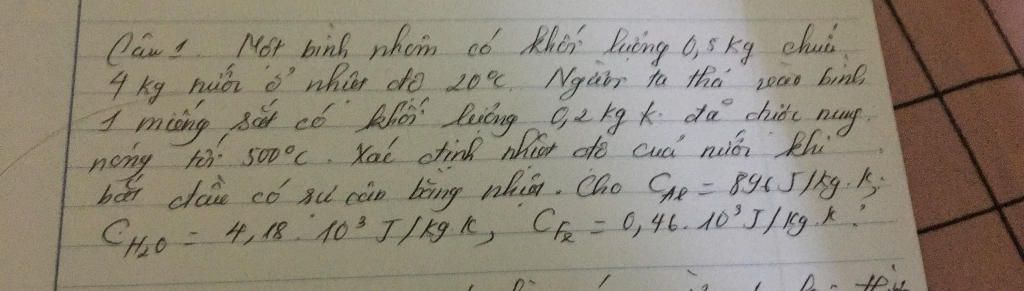 Câu 1. Một bình nhôm có khối lượng 0,5 kg chứa
4 kg nước ở nhiệt độ 20°C. Người ta thả vào bình
1 miếng sắt có khối lượng 0,2 kg k đã được nung
nóng tới 500°C. Xác định nhiệt độ của nước khi
bắt đầu có sự cân bằng nhiệt. Cho C_Al = 896 J/kg.K;
C_H2O = 4,18.10³ J/kg.K, C_Fe = 0,46.10³ J/kg.K.